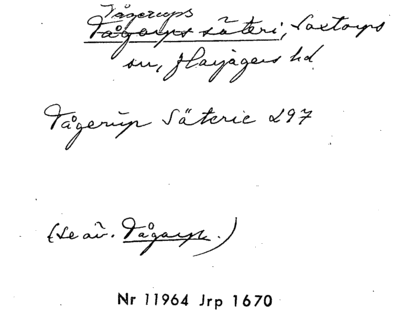 Vågerups
Vågarps säteri, Saxtorps
sn, Harjagers hd
Vågerup Säterie 297
(Se äv. Vågarp.)
Nr 11964 Jrp 1670